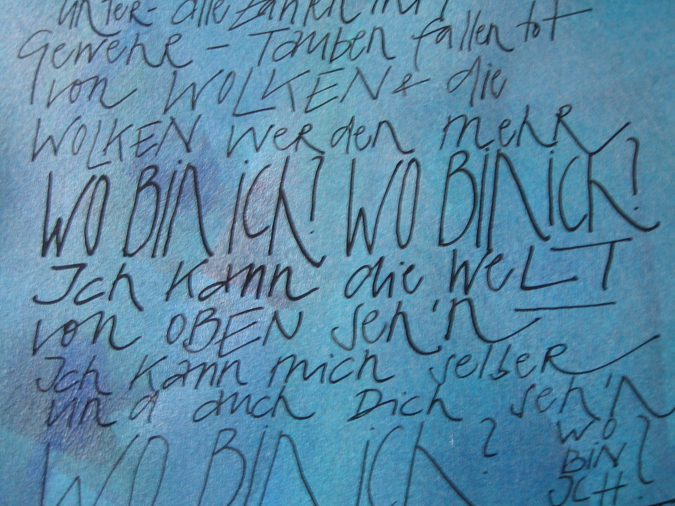 unter - alle zählen ihr
Gewehr - Tauben fallen tot
von WOLKEN & die
WOLKEN werden mehr
WO BIN ICH? WO BIN ICH?
Ich kann die WeLT
von OBEN seh'n
Ich kann mich selber
und auch Dich seh'n
WO BIN ICH? WO
BIN
ICH?